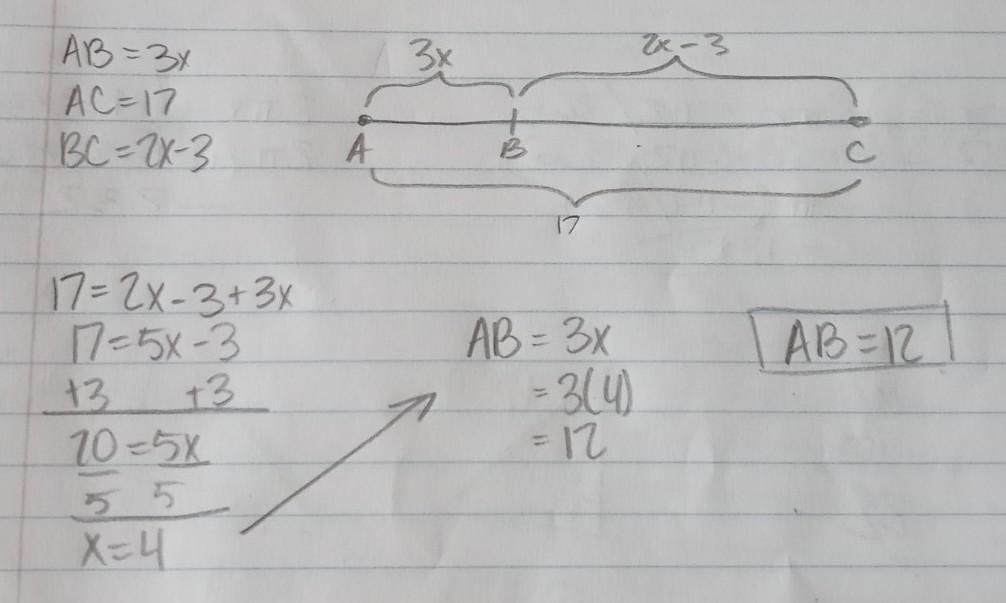 AB = 3x
AC = 17
BC = 2x - 3
3x
2x - 3
A
B
C
17
17 = 2x - 3 + 3x
17 = 5x - 3
+3 +3
20 = 5x
5 5
x = 4
AB = 3x
= 3(4)
= 12
AB = 12